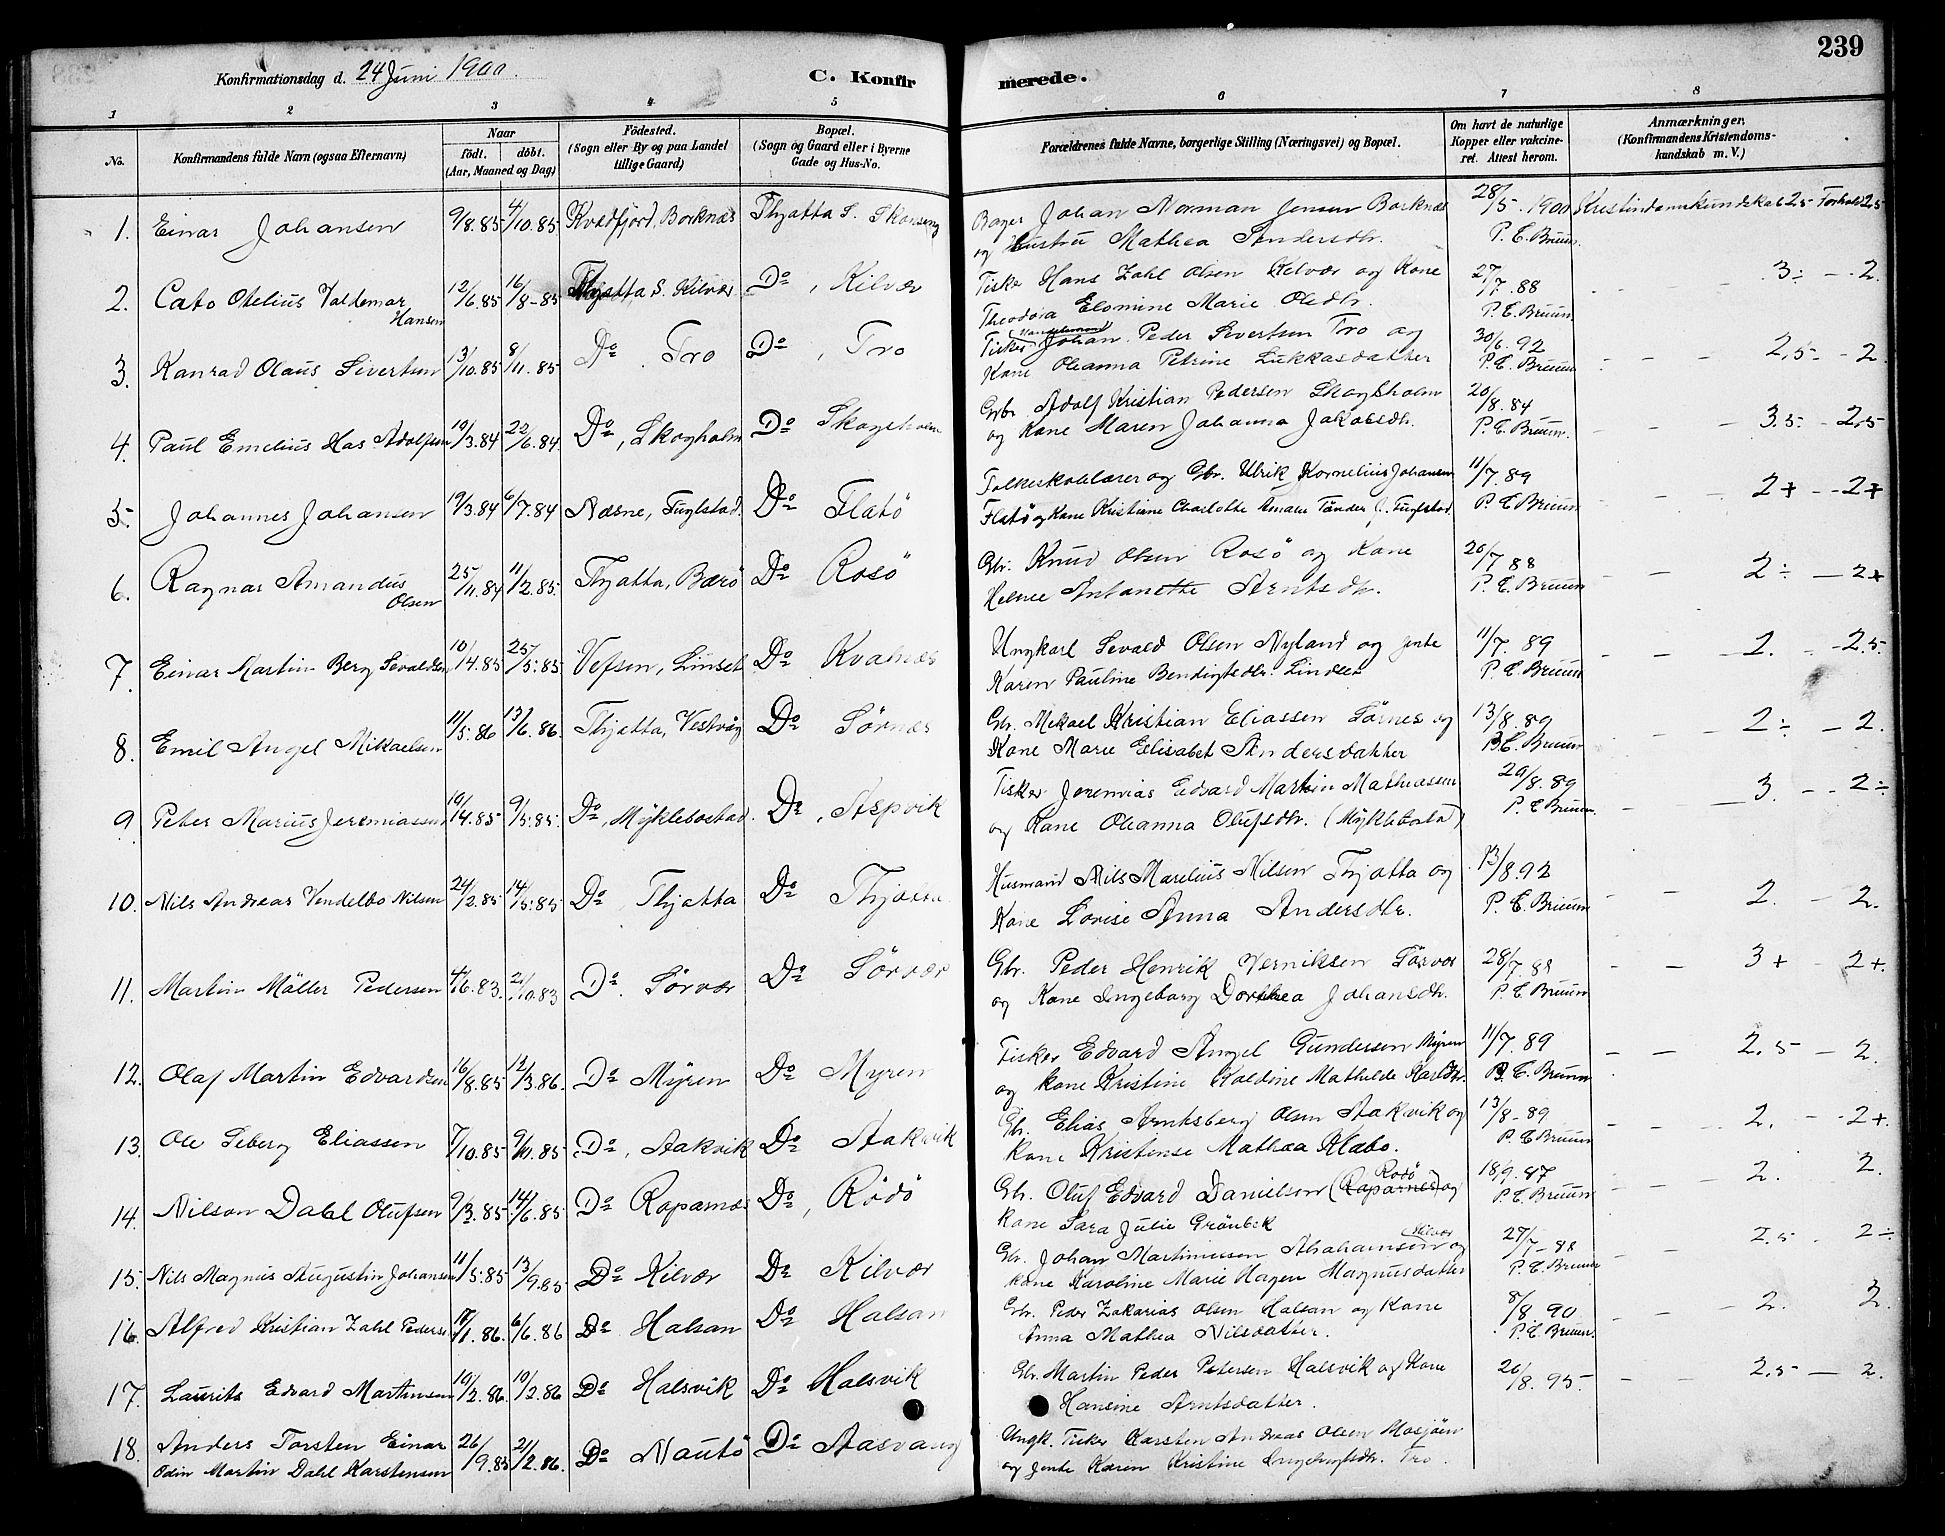 239
Konfirmationsdag d. 24 Juni 1900.
C. Konfirmerede.
1 2 3 4 5 6 7 8
No. Konfirmandens fulde Navn (ogsaa Efternavn) Naar födt. döbt. (Aar, Maaned og Dag) Födested. (Sogn eller By og paa Landet tillige Gaard) Bopæl. (Sogn og Gaard eller i Byerne Gade og Hus-No. Forældrenes fulde Navne, borgerlige Stilling (Næringsvei) og Bopæl. Om havt de naturlige Kopper eller vakcineret. Attest herom. Anmærkninger. (Konfirmandens Kristendomskundskab m. V.)
1. Einar Johansen 9/8.85 4/10.85 Kvædfjord, Borknæs Thjøtta S. Bager Johan Norman Jensen Borknæs 28/5.1900 Kristendomskundskab 2,5 Forhold 2,5
og Hustru Mathea Andersdtr. P. C. Bruun.
2. Cato Otelius Valdemar Hansen 12/6.85 16/8-85 Thjøtta S. Kilvær Do, Kilvær Fisker Hans Zahl Olsen Kilvær og Kone 27/7.88 3÷ - 2.
Theodora Elomine Marie Olsdtr. P. C. Bruun.
3. Konrad Olaus Sivertsen 13/10.85 8/11.85 Do Tro Do, Tro Fisker Johan Peder Sivertsen Tro og 30/6.92 2,5 - 2.
Kone Oleanna Petrine Lukkasdatter P. C. Bruun
4. Paul Emelius Has Adolfsen 10/3.84 22/6.84 Do, Skogholm Do Skogsholm Gbr. Adolf Kristian Pedersen Skogsholm 20/8.84 3.5 - 2,5
og Kone Maren Johanna Jakobsdtr. P. C. Bruun.
5. Johannes Johansen 19/3.84 6/7.84 Næsne, Fuglstad. Do Flatö Folkeskolelærer og Gbr. Ulrik Kornelius Johansen 11/7.89 2+ - 2+
Flatö og Kone Kristiane Charlotte Amalie Tönder f. Fuglstad P. C. Bruun
6. Ragnar Amandus Olsen 25/11.84 11/2.85. Thjøtta, Bærö Do Rosö Gbr. Knud Olsen Rosö og Kone 20/7 88 2÷ - 2+
Helene Antonette Arntsdtr. P. C. Bruun
7. Einar Martin Berg Sevaldsen 10/4.85 25/5.85 Vefsen, Linset Do Kvalnæs Ungkarl Sevald Olsen Nyland og Jente 11/7.89 2. - 2,5.
Karen Pauline Bendigtsdtr. Lindset P. C. Bruun
8. Emil Angel Mikaelsen 11/5.86 13/6.86. Thjøtta, Vestvåg Do Sörnæs Gbr. Mikael Kristian Eliassen Sörnes og 13/8.89 2÷ - 2.
Kone Marie Elisabet Andersdatter P. C. Bruun
9 Peter Marius Jeremiassen 10/4.85 9/5.85. Do, Myklebostad. Do, Aspvik Fisker Jeremias Edvard Martin Mathiassen 29/8.89 3. - 2÷
og Kone Oleanna Olufsdtr. (Myklebostad) P. C. Bruun.
10. Nils Andreas Vendelbo Nilsen 24/2.85 14/5.85 Do Thjøtta Do Thjøtta Husmand Nils Marelius Nilsen Thjøtta og 13/8.92 2. - 2.
Kone Lovise Anna Andersdtr. P. C. Bruun
11. Martin Möller Pedersen 4/6.83. 21/10.83 Do. Sörvær Do Sörvær Gbr. Peder Henrik Verniksen Sörvær 28/7.88 3+ - 2+.
og Kone Ingeborg Dorthea Johansdtr. P. C. Bruun
12. Olaf Martin Edvardsen 16/8.85 12/3.86. Do Myren Do Myren Fisker Edvard Angel Gundersen Myren 11/7.89 2,5 - 2.
og kone Kristine Koldine Mathilde Karlsdtr. P. C. Bruun
13. Ole Seberg Eliassen 7/10.85 9/11.85 Do, Aakvik Do Aakvik Gbr. Elias Arntsberg Olsen Aakvik og 13/8-89 2. - 2+.
kone Kristense Mathea Klabo. P. C. Bruun
14. Nilson Dahl Olufsen 9/3.85 14/6.85 Do Rapamæs Do, Rödö Gbr. Oluf Edvard Danielsen (Raparnes) Rödö og 18/9.87 2. 2.
Kone Sara Julie Grönbek P. C. Bruun
15. Nils Magnus Augustin Johansen 11/5.85 13/9.85 Do Kilvær Do Kilvær Gbr. Johan Martinussen Abrahamsen og 27/7-88 2.5. 2÷
Kone Karoline Marie Hagen Magnusdatter P. C. Bruun
16. Alfred Kristian Zahl Peders 17/1.86. 6/6.86 Do Halsan Do Halsan Gbr. Peder Zakarias Olsen Halsan og Kone 8/8.90 2. 2.
Anna Mathea Nilsdatter. P. C. Bruun.
17. Laurits Edvard Martinsen 10/2.86. 10/2.86 Do Halsvik Do Halsvik Gbr. Martin Peder Petersen Halsvik og Kone 26/8.95. 2,5 - 2.
Hansine Arntsdatter.
18. Anders Torsten Einar 26/9.85 21/2.86. Do Nautö Do Aasvang Ungk. Fisker Karsten Andreas Olsen Mosjöen
Odin Martin Dahl Karstensen og Jente Karen Kristine Tro.